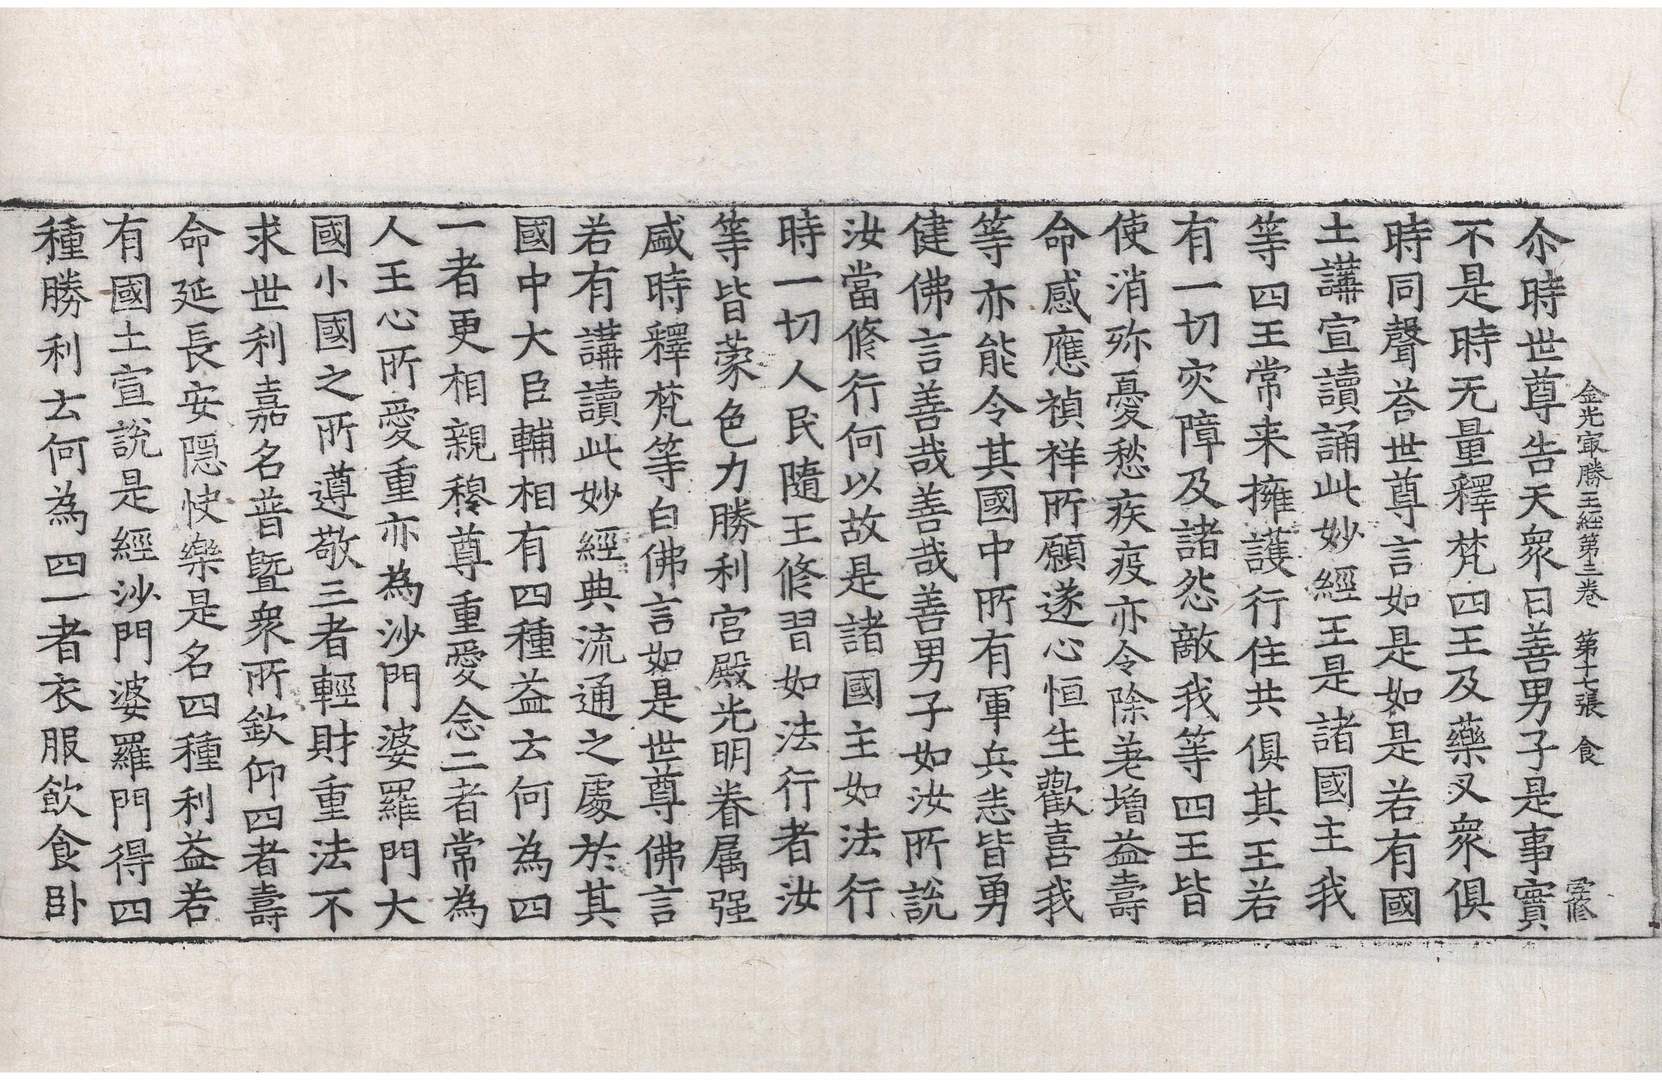 金光㝡勝王經第三卷　第十七張　食
尒時世尊告天衆曰善男子是事實
不是時无量釋梵四王及藥叉衆俱
時同聲荅世尊言如是如是若有國
土講宣讀誦此妙經王是諸國主我
等四王常来擁護行住共俱其王若
有一切灾障及諸怨敵我等四王皆
使消殄憂愁疾疫亦令除差增益壽
命感應禎祥所願遂心恒生歡喜我
等亦能令其國中所有軍兵悉皆勇
健佛言善哉善哉善男子如汝所說
汝當修行何以故是諸國主如法行
時一切人民隨王修習如法行者汝
等皆蒙色力勝利宮殿光明眷属强
盛時釋梵等白佛言如是世尊佛言
若有講讀此妙經典流通之處於其
國中大臣輔相有四種益云何為四
一者更相親穆尊重愛念二者常為
人王心所愛重亦為沙門婆羅門大
國小國之所遵敬三者輕財重法不
求世利嘉名普曁衆所欽仰四者壽
命延長安隱快樂是名四種利益若
有國土宣說是經沙門婆羅門得四
種勝利云何為四一者衣服飲食卧